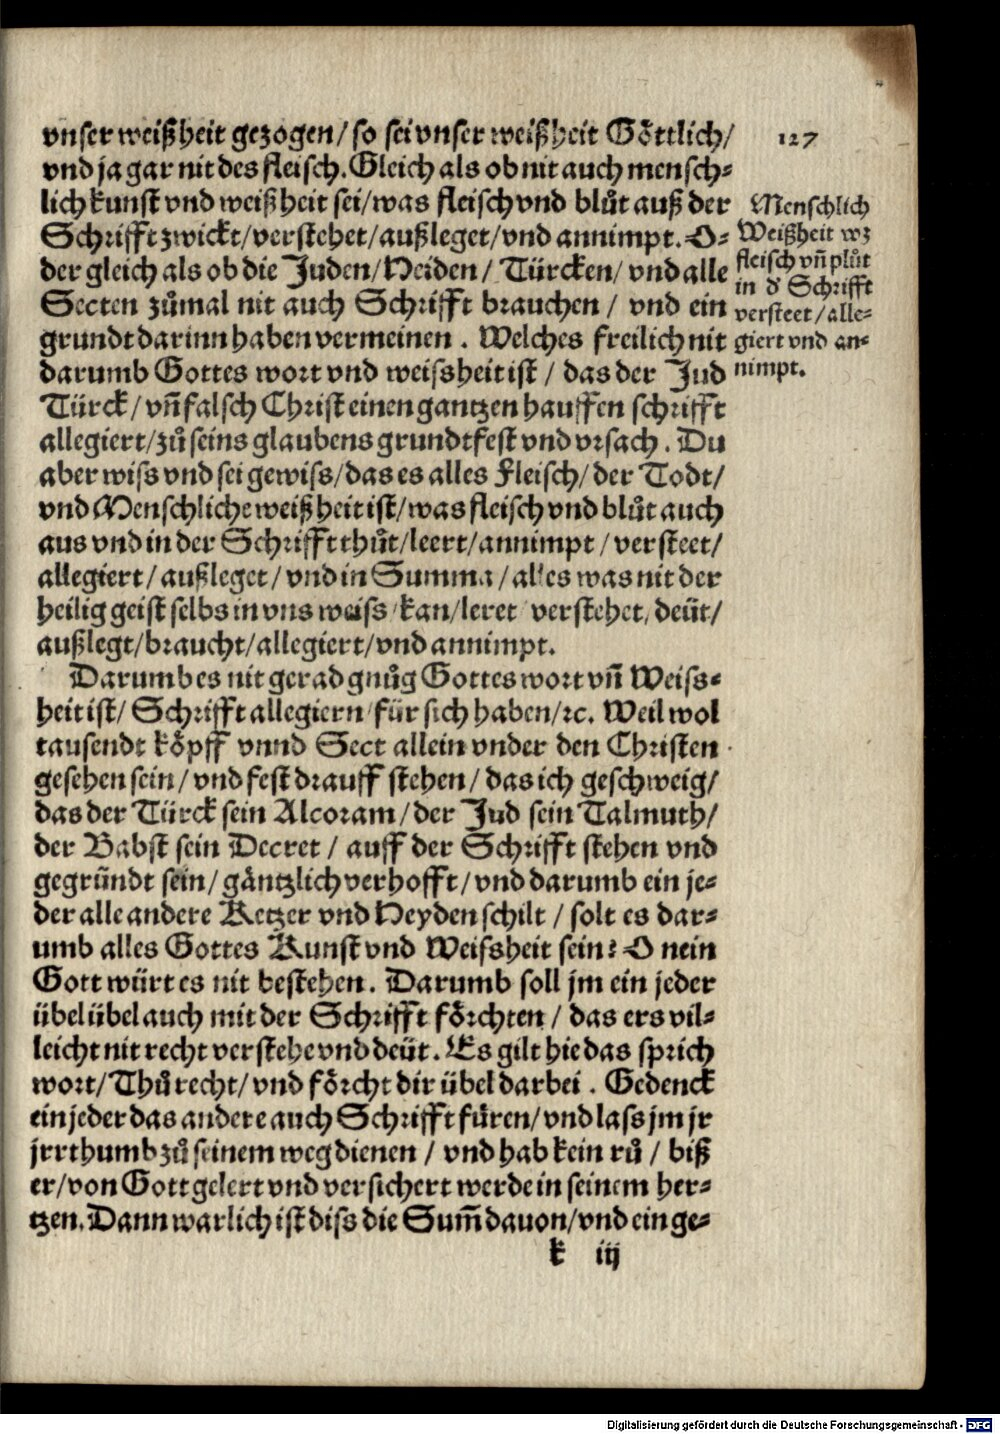 127
vnser weißheit gezogen/ so sei vnser weißheit Göttlich/
vnd ja gar nit des fleisch. Gleich als ob nit auch mensch-
lich kunst vnd weißheit sei/ was fleisch vnd blůt auß der
Schrifft zwickt/ verstehet/ außleget/ vnd annimpt. O-
der gleich als ob die Juden/ Heiden/ Türcken/ vnd alle
Secten zůmal nit auch Schrifft brauchen/ vnd ein
grundt darinn haben vermeinen. Welches freilich nit
darumb Gottes wort vnd weissheit ist/ das der Jud
Türck/ vñ falsch Christ einen gantzen hauffen schrifft
allegiert/ zů seins glaubens grundtfest vnd vrsach. Du
aber wiss vnd sei gewiss/ das es alles Fleisch/ der Todt/
vnd Menschliche weißheit ist/ was fleisch vnd blůt auch
aus vnd in der Schrifft thůt/ leert/ annimpt/ versteet/
allegiert/ außleget/ vnd in Summa/ alles was nit der
heilig geist selbs in vns weiss/ kan/ leret/ verstehet/ deüt/
außlegt/ braucht/ allegiert/ vnd annimpt.
Darumb es nit gerad gnůg Gottes wort vñ Weiss-
heit ist/ Schrifft allegiern/ für sich haben/ ꝛc. Weil wol
tausendt köpff vnnd Sect allein vnder den Christen
gesehen sein/ vnd fest drauff stehen/ das ich geschweig/
das der Türck sein Alcoram/ der Jud sein Talmuth/
der Babst sein Decret/ auff der Schrifft stehen vnd
gegründt sein/ gäntzlich verhofft/ vnd darumb ein je-
der alle andere Ketzer vnd Heyden schilt/ solt es dar-
umb alles Gottes Kunst vnd Weissheit sein? O nein
Gott würt es nit bestehen. Darumb soll jm ein jeder
übel übel auch mit der Schrifft förchten/ das ers vil-
leicht nit recht verstehe vnd deüt. Es gilt hie das sprich
wort/ Thů recht/ vnd förcht dir übel darbei. Gedenck
ein jeder das andere auch Schrifft füren/ vnd lass jm jr
jrrthumb zů seinem weg dienen/ vnd hab kein rů/ biß
er/ von Gott gelert vnd versichert werde in seinem her-
tzen. Dann warlich ist diss die Sum̃ dauon/ vnd ein ge-
k iij
Menschlich
Weißheit wz
fleisch vñ plůt
in d' Schrifft
versteet/ alle-
giert vnd an-
nimpt.
Digitalisierung gefördert durch die Deutsche Forschungsgemeinschaft - DFG